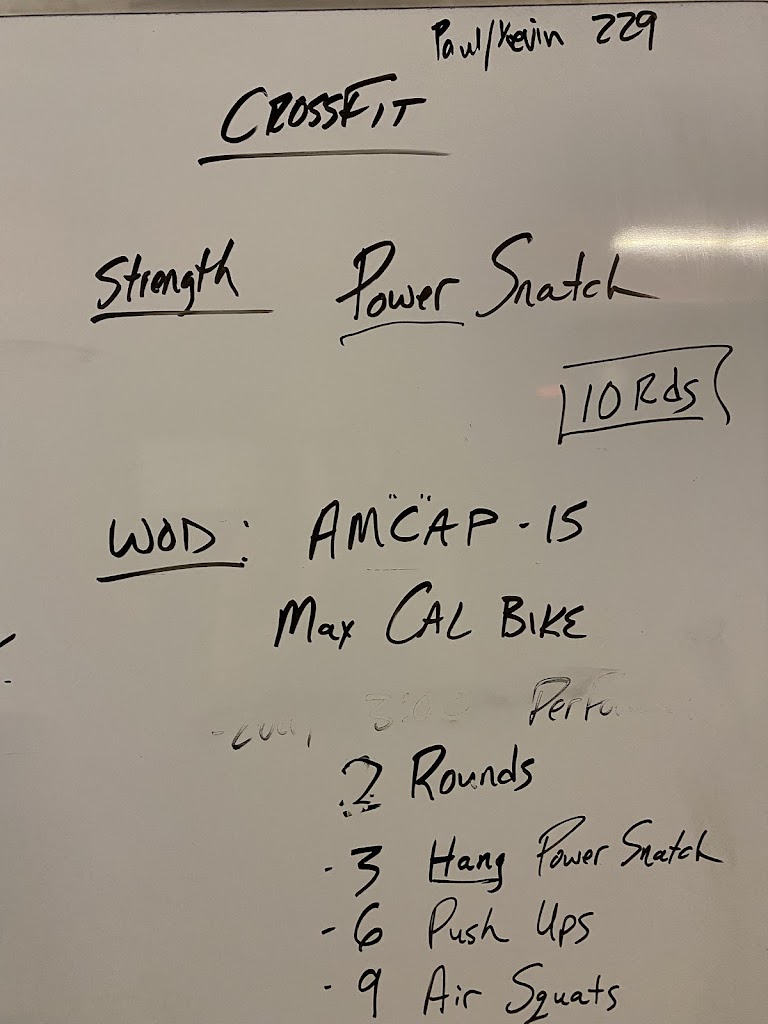 Paul/Kevin 229
CROSSFIT
Strength Power Snatch
10 Rds
WOD: AM"C"AP - 15
Max CAL BIKE
3:0
2 Rounds
- 3 Hang Power Snatch
- 6 Push Ups
- 9 Air Squats